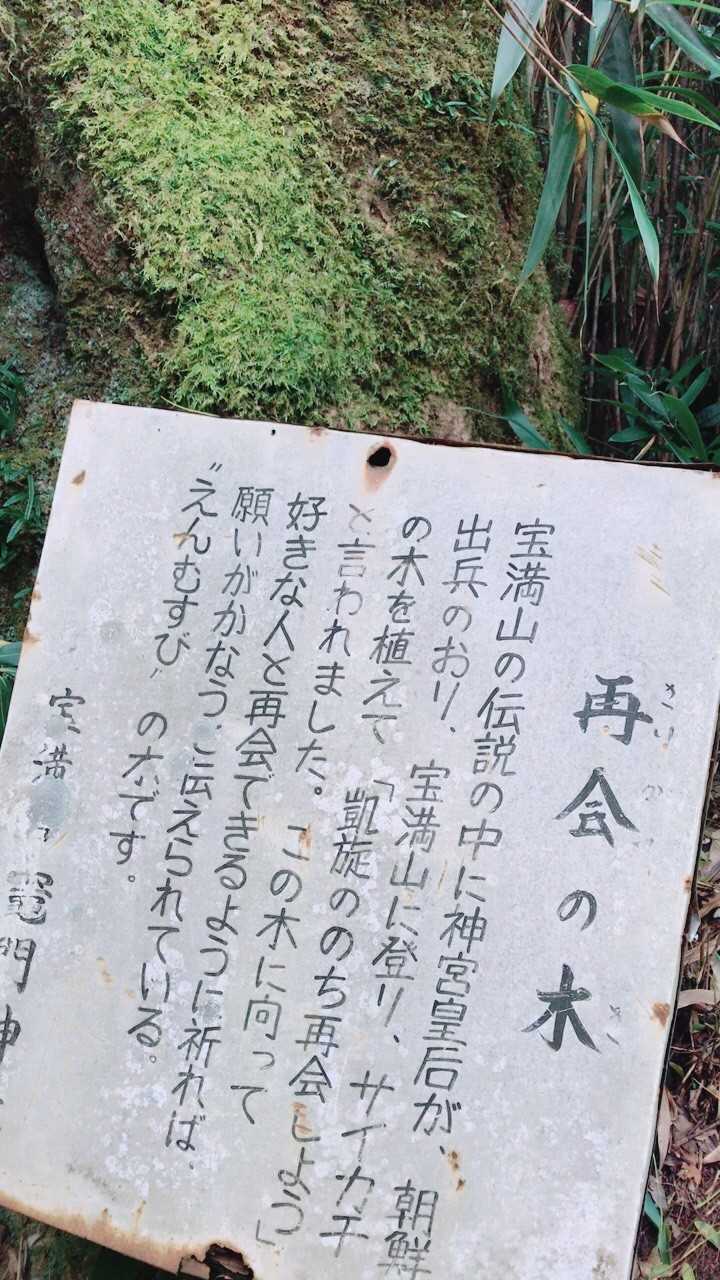 再会の木
宝満山の伝説の中に神宮皇后が、朝鮮
出兵のおり、宝満山に登り、サイカチ
の木を植えて「凱旋ののち再会しよう」
と言われました。この木に向って
好きな人と再会できるように祈れば、
願いがかなう、伝えられている。
〝えんむすび〟の木です。
宝満 竈門神